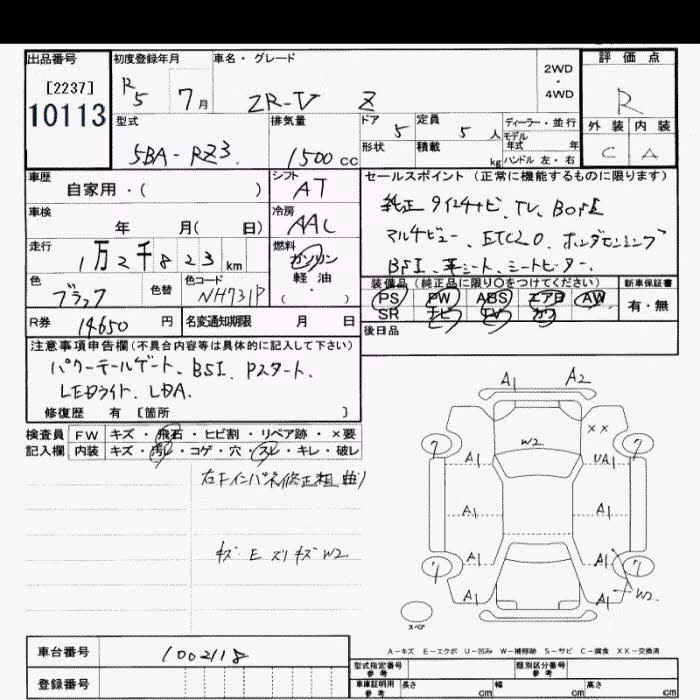 出品番号
[2237]
10113
初度登録年月
R5 7月
車名・グレード
ZR-V Z
2WD
・
4WD
評価点
R
外装 内装
C A
型式
5BA-RZ3
排気量
1500cc
ドア 5
定員 5人
ディーラー・並行
モデル
年式 年
形状
積載 kg
ハンドル 左・右
車歴
自家用・( )
シフト
AT
車検
年 月( 日)
冷房
AAC
走行
1万2千823km
燃料
ガソリン
軽油
( ・ )
色
ブラック
色替
色コード
NH731P
R券 14650円
名変通知期限 月 日
セールスポイント(正常に機能するものに限ります)
純正9インチナビ、TV、Bカメラ
マルチビュー、ETC2.0、ホンダセンシング
BSI、革シート、シートヒーター。
装備品(純正品に限り○をつけてください)
新車保証書
PS PW ABS エアB AW
SR ナビ TV カワ
有・無
後日品
注意事項申告欄(不具合内容等は具体的に記入して下さい)
パワーテールゲート、BSI、Pスタート、
LEDライト、LDA。
修復歴 有 [箇所 ]
検査員 FW キズ・飛石・ヒビ割・リペア跡・×要
記入欄 内装 キズ・汚れ・コゲ・穴・スレ・キレ・破レ
右Fインパネ修正粗 曲り
キズ E スリキズ W2
A1 A2
W2 ××
7 7
A1 UA1
A1 A1
A1 A1
7 7
A1 A1 W2
スペア
A-キズ E-エクボ U-凹み W-補修跡 S-サビ C-腐食 XX-交換済
車台番号
1002118
登録番号
型式指定番号
参考
類別区分番号
参考
車庫証明用
参考
長さ cm 幅 cm 高さ cm